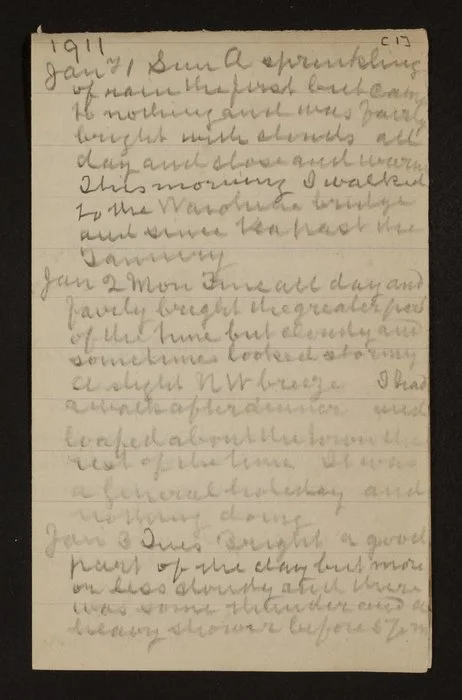 1911 [1]
Jan 1 Sun A sprinkling
of rain the first but came
to nothing and was fairly
bright with clouds all
day and close and warm
This morning I walked
to the bridge
and since tea past the
Tannery
Jan 2 Mon Fine all day and
fairly bright the greater part
of the time but cloudy and
sometimes looked stormy
a slight NW breeze I had
a walk after dinner and
loafed about the town the
rest of the time It was
a general holiday and
nothing doing
Jan 3 Tues Bright a good
part of the day but more
or less cloudy and there
was some thunder and a
heavy shower before 5 pm